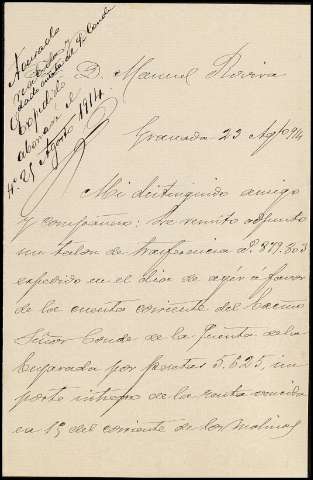 Acusado
recibido y
dado nota al Sr. Conde
Expedido
abonaré el
Hoy 25 Agosto 1914.
D. Manuel Rivera
Granada 23 Agto 914
Mi distinguido amigo
y compañero: Le remito adjunto
un talon de trasferencia nº 877.303
expedido en el dia de ayer á favor
de la cuenta corriente del Excmo
Señor Conde de la Puebla de la
por pesetas 5.625, im
porte integro de la renta vencida
en 15 del corriente de los Molinos